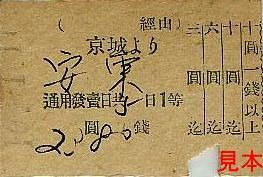 ( 經由)
京城より
安東
通用發賣日共一日1等
圓 錢
20 80
十圓一錢以上
十圓迄
六圓迄
二圓迄
見本